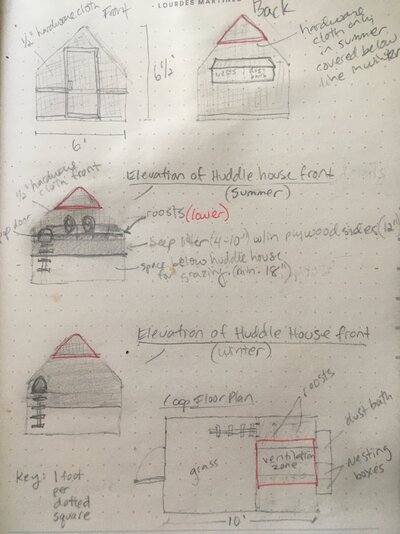 LOURDES MARTINE
1/2" hardware cloth
Front
6 1/2'
6'
Back
nests
dust bath
hardware
cloth only
in summer.
covered below
line in winter
Elevation of Huddle house front
(Summer)
1/2" hardware
cloth front
pop door
roosts (lower)
Deep litter (4-10") w/in plywood sides (12")
space below huddle house
for grazing. (min. 18")
Elevation of Huddle House front
(winter)
Coop Floor Plan
roosts
dust bath
nesting
boxes
grass
ventilation
zone
10'
Key: 1 foot
per
dotted
square